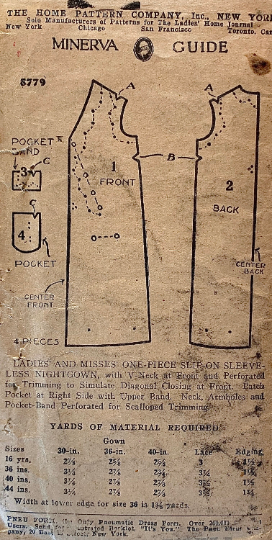 THE HOME PATTERN COMPANY, Inc., NEW YORK
Sole Manufacturers of Patterns for The Ladies' Home Journal
New York Chicago San Francisco Toronto, Can
MINERVA GUIDE
8779
A A
POCKET BAND
C
3
1
FRONT
B
2
BACK
C
4
POCKET
CENTER FRONT
CENTER BACK
4 PIECES
LADIES' AND MISSES' ONE-PIECE SLIP-ON SLEEVE-
LESS NIGHTGOWN, with V Neck at Front and Perforated
for Trimming to Simulate Diagonal Closing at Front. Patch
Pocket at Right Side with Upper Band. Neck, Armholes and
Pocket-Band Perforated for Scalloped Trimming.
YARDS OF MATERIAL REQUIRED
Gown
Sizes 30-in. 36-in. 40-in. Lace Edging
16 yrs.
36 ins.
40 ins.
44 ins.
Width at lower edge for size 36 is yards
PNEU FORM, the Only Pneumatic Dress Form. Over
Booklet, "It's You." The Pneu Form
pany, Street, New York